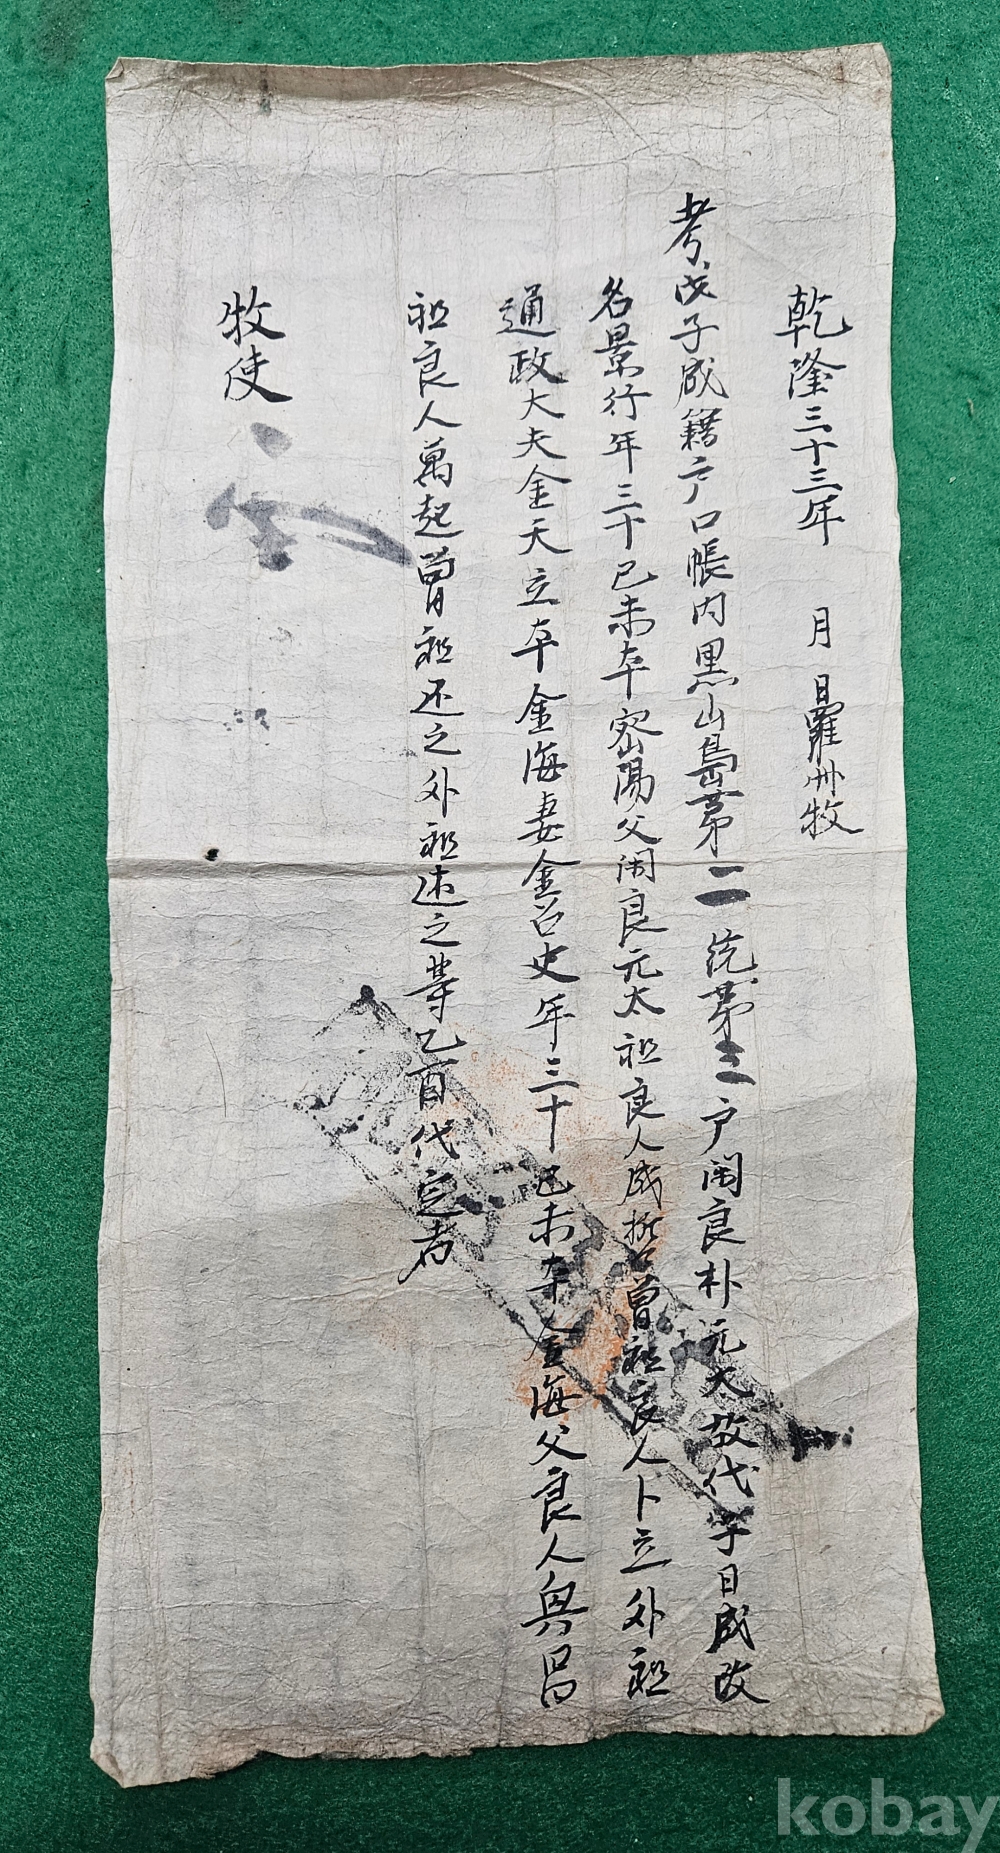 乾隆三十三年 月 日羅州牧
考戊子成籍户口帳內黑山島苐二統苐三户閑良朴元太故代子日成改
名景行年三十己未本密陽父閑良元太祖良人成 曾祖良人卜立外祖
通政大夫金天立本金海妻金召史年三十己未本金海父良人興昌
祖良人萬起曾祖还之外祖述之等乙酉代定者
牧使
kobay